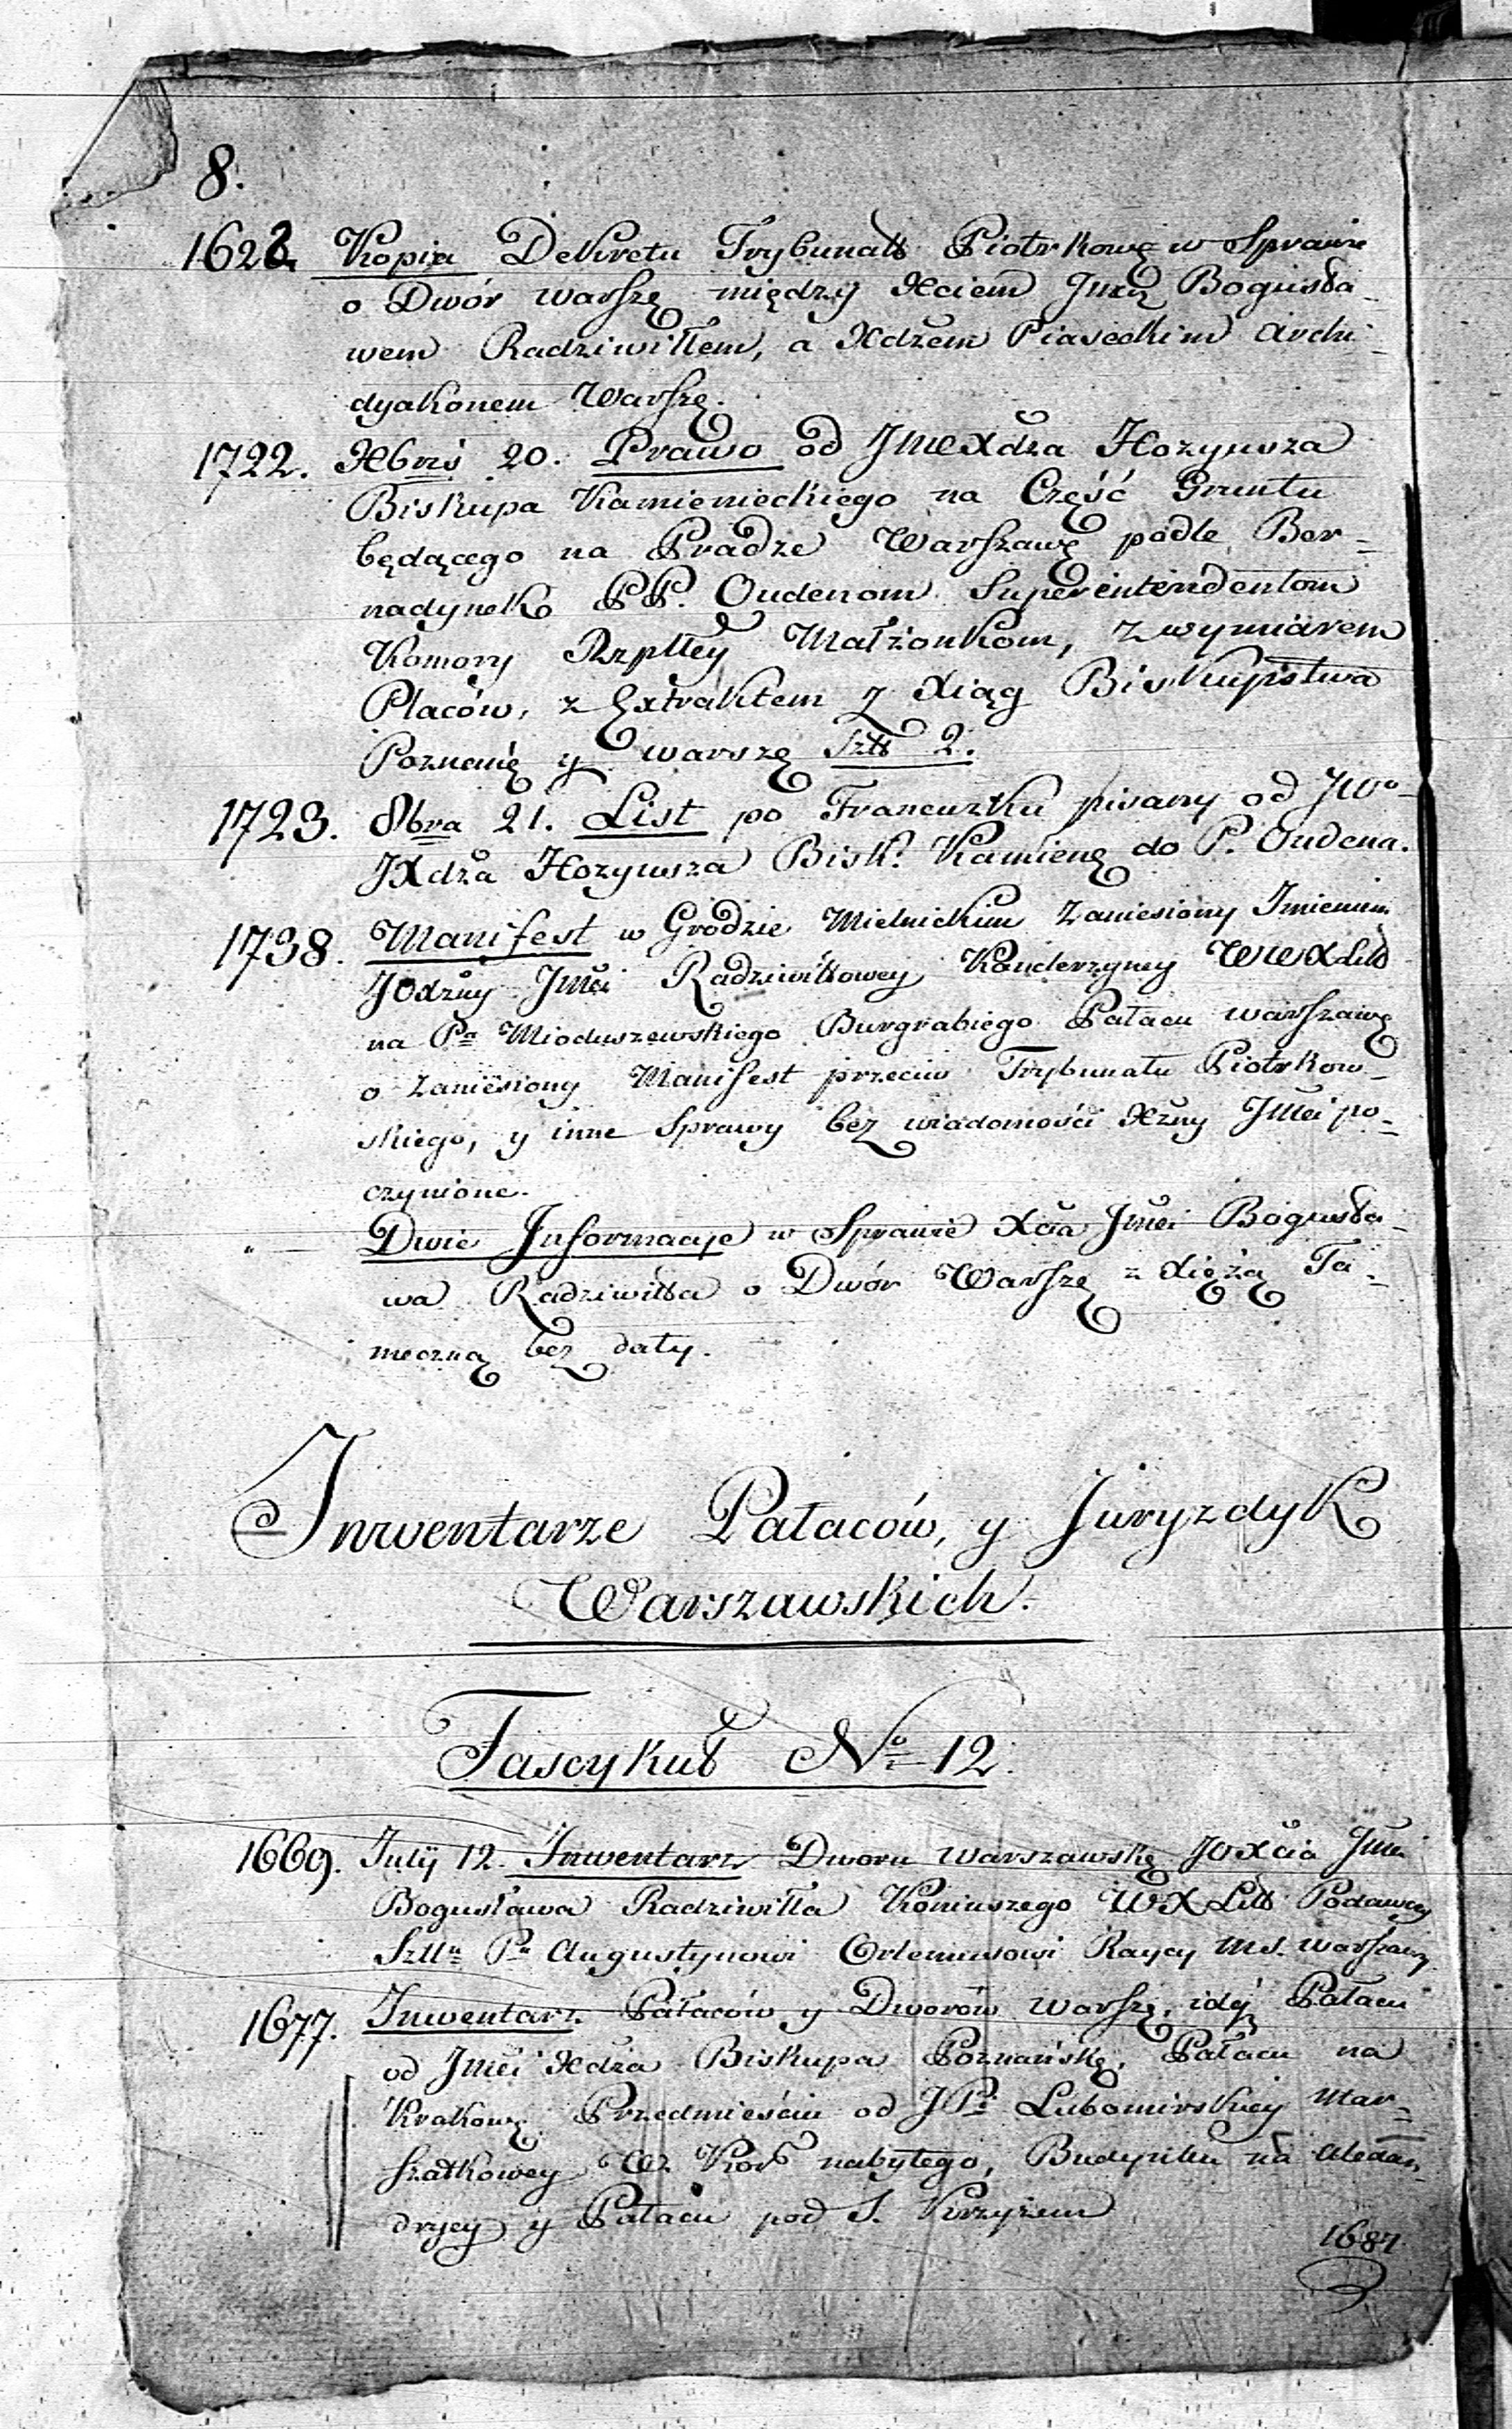 8.
1628. Kopia Dekretu Trybunału Piotrkowę w Sprawie
o Dwór Warszę między Xciem Jmcią Bogusła-
wem Radziwiłłem, a Xdzem Piaseckim Archi-
dyakonem Warszę.
1722. Xbris 20. Prawo od JWXdza Hozyusza
Biskupa Kamienieckiego na Część Gruntu
będącego na Pradze Warszawę podle Ber=
nadynek PP. Oudenom Superintendentom
Komory Rzpltey Małżonkom, z wymiarem
Placów, z Extraktem z Xiąg Biskupstwa
Poznanię y warszę Sztk 2.
1723. 8bra 21. List po Francuzku pisany od JWo-
JXdza Hozyusza Bisk: Kamienę do P. Oudena.
1738. Manifest w Grodzie Mielnickim Zaniesiony Imieniem
JOXżny Jmci Radziwiłłowey Kanclerzyney WWXLitt
na Pa Mioduszewskiego Burgrabiego Pałacu warszawę
o zaniesiony Manifest przeciw Trybunału Piotrkow-
skiego, y inne Sprawy bez wiadomości Xżny Jmci po-
czynione.
" — Dwie Informacye w Sprawie Xcia Jmci Bogusła-
wa Radziwiłła o Dwór Warszę z Xiężą Ta-
meczną bez daty.
Inwentarze Pałaców, y Juryzdyk
Warszawskich.
Fascykuł No 12.
1669. Julij 12. Inwentarz Dworu Warszawskę JOXcia Jmci
Bogusława Radziwiłła Koniuszego WXLitt Podawcy
Szlln Pn Augustynowi Orlemusowi Raycy M.S. Warszawę
1677. Inwentarz Pałaców y Dworów Warszę, idq Pałacu
od Jmci Xdza Biskupa Poznańskę, Pałacu na
Krakowę Przedmieściu od JPi Lubomirskiey Mar=
szałkowey W. Kor nabytego, Budynku na Alexan-
dryey y Pałacu pod S. Krzyżem
1687